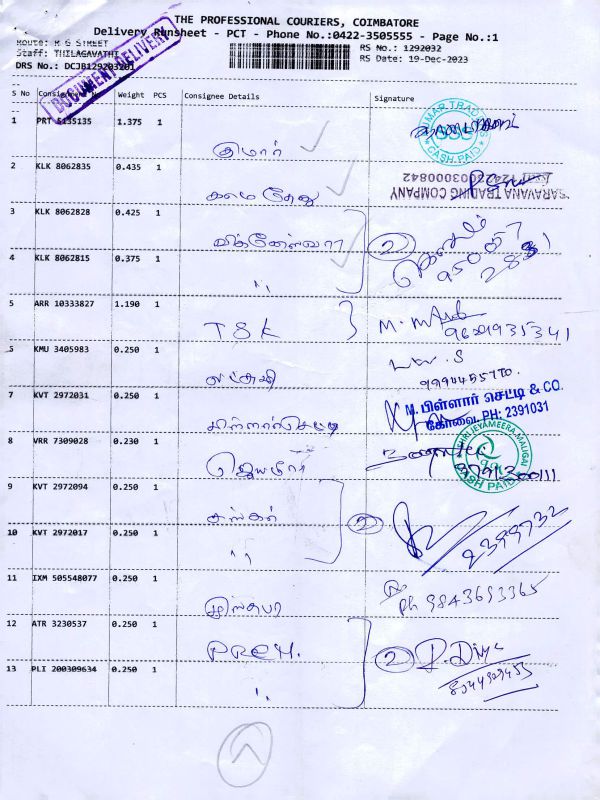 THE PROFESSIONAL COURIERS, COIMBATORE
Delivery Runsheet - PCT - Phone No.:0422-3505555 - Page No.:1
Route: R G STREET
RS No.: 1292032
Staff: THILAGAVATHI
RS Date: 19-Dec-2023
DRS No.: DCJB129203201
DOCUMENT DELIVERY
S No Consignment No Weight PCS Consignee Details Signature
1 PRT 5135135 1.375 1 குமார்
CASH PAID
2 KLK 8062835 0.435 1 காமதேனு
SARAVANA TRADING COMPANY
3 KLK 8062828 0.425 1 விக்னேஸ்வரா 2
4 KLK 8062815 0.375 1 "
5 ARR 10333827 1.190 1 TSK
9629935341
6 KMU 3405983 0.250 1 லட்சுமி
7 KVT 2972031 0.250 1 பிள்ளார்செட்டி
M. பிள்ளார் செட்டி & CO.
கோவை. PH: 2391031
8 VRR 7309028 0.230 1
SHRI JEYAMEERA MALIGAI
CASH PAID
9 KVT 2972094 0.250 1 தங்கம் 2
10 KVT 2972017 0.250 1 "
2399732
11 IXM 505548077 0.250 1
Ph 9843693365
12 ATR 3230537 0.250 1 PREM. 2
13 PLI 200309634 0.250 1 "